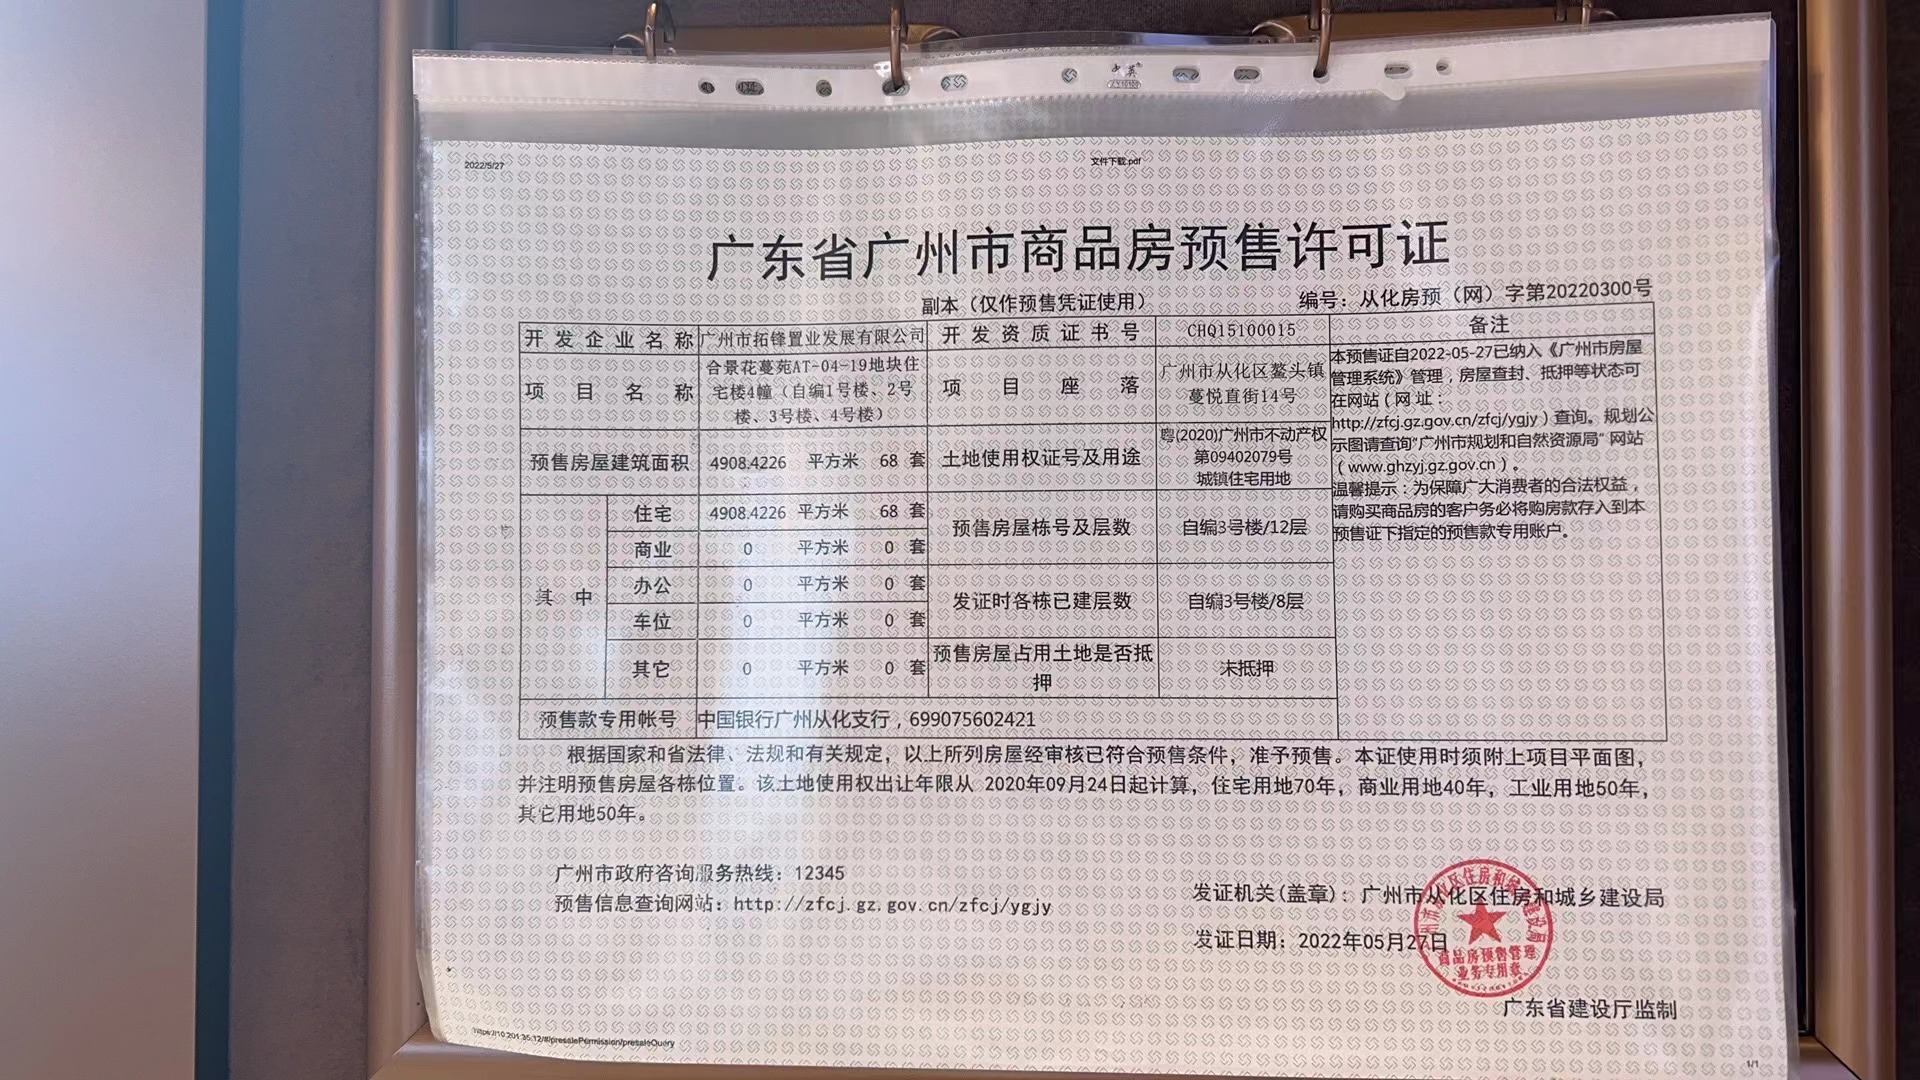 中英
2022/5/27
文件下载.pdf
广东省广州市商品房预售许可证
副本（仅作预售凭证使用）
编号：从化房预（网）字第20220300号
开发企业名称 广州市拓锋置业发展有限公司 开发资质证书号 CHQ15100015 备注
项目名称
合景花蔓苑AT-04-19地块住
宅楼4幢（自编1号楼、2号
楼、3号楼、4号楼）
项目座落
广州市从化区鳌头镇
蔓悦直街14号
预售房屋建筑面积 4908.4226 平方米 68 套
土地使用权证号及用途
粤(2020)广州市不动产权
第09402079号
城镇住宅用地
其中
住宅 4908.4226 平方米 68 套
商业 0 平方米 0 套
办公 0 平方米 0 套
车位 0 平方米 0 套
其它 0 平方米 0 套
预售房屋栋号及层数 自编3号楼/12层
发证时各栋已建层数 自编3号楼/8层
预售房屋占用土地是否抵
押
未抵押
本预售证自2022-05-27已纳入《广州市房屋
管理系统》管理，房屋查封、抵押等状态可
在网站（网 址：
http://zfcj.gz.gov.cn/zfcj/ygjy）查询。规划公
示图请查询"广州市规划和自然资源局"网站
（www.ghzyj.gz.gov.cn）。
温馨提示：为保障广大消费者的合法权益，
请购买商品房的客户务必将购房款存入到本
预售证下指定的预售款专用账户。
预售款专用帐号 中国银行广州从化支行，699075602421
根据国家和省法律、法规和有关规定，以上所列房屋经审核已符合预售条件，准予预售。本证使用时须附上项目平面图，
并注明预售房屋各栋位置。该土地使用权出让年限从 2020年09月24日起计算，住宅用地70年，商业用地40年，工业用地50年，
其它用地50年。
广州市政府咨询服务热线：12345
预售信息查询网站：http://zfcj.gz.gov.cn/zfcj/ygjy
发证机关(盖章)：广州市从化区住房和城乡建设局
发证日期：2022年05月27日
商品房预售管理
业务专用章
广东省建设厅监制
https://10.201.35.12/#/presalePermission/presaleQuery
1/1